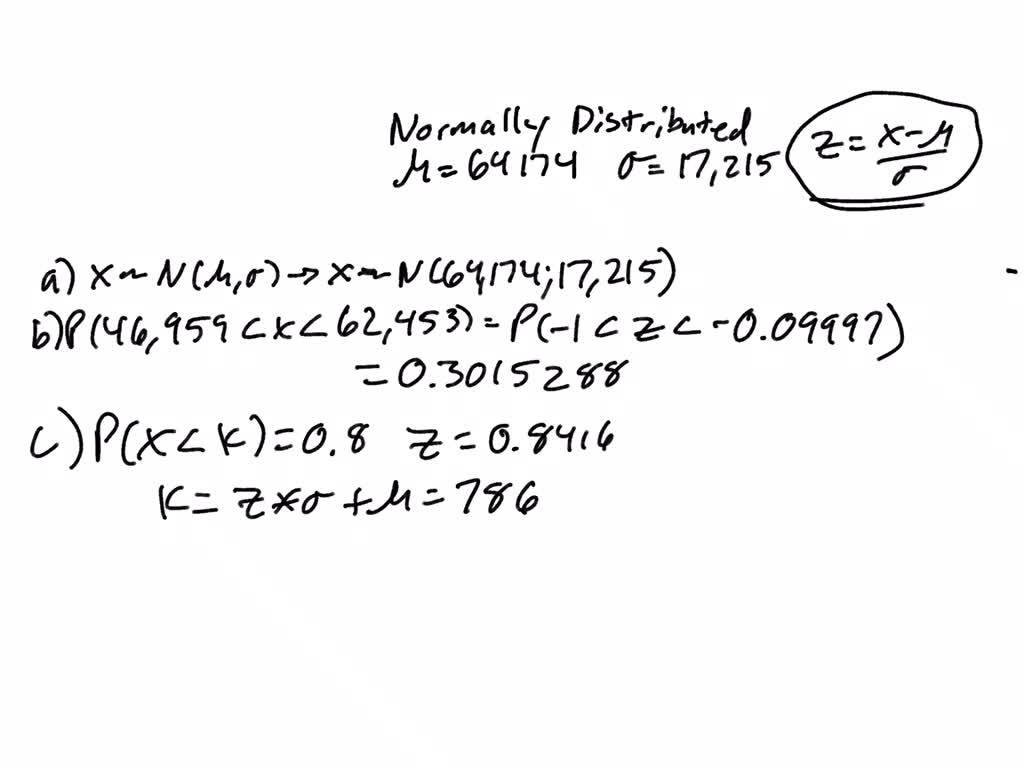 Normally Distributed
μ=64174 σ=17,215
z=x-μ/σ
a) x~N(μ,σ)→x~N(64,174;17,215)
b)P(46,959<x<62,453)=P(-1<z<-0.09997)
=0.3015288
c)P(x<k)=0.8 z=0.8416
k=z*σ+μ=786